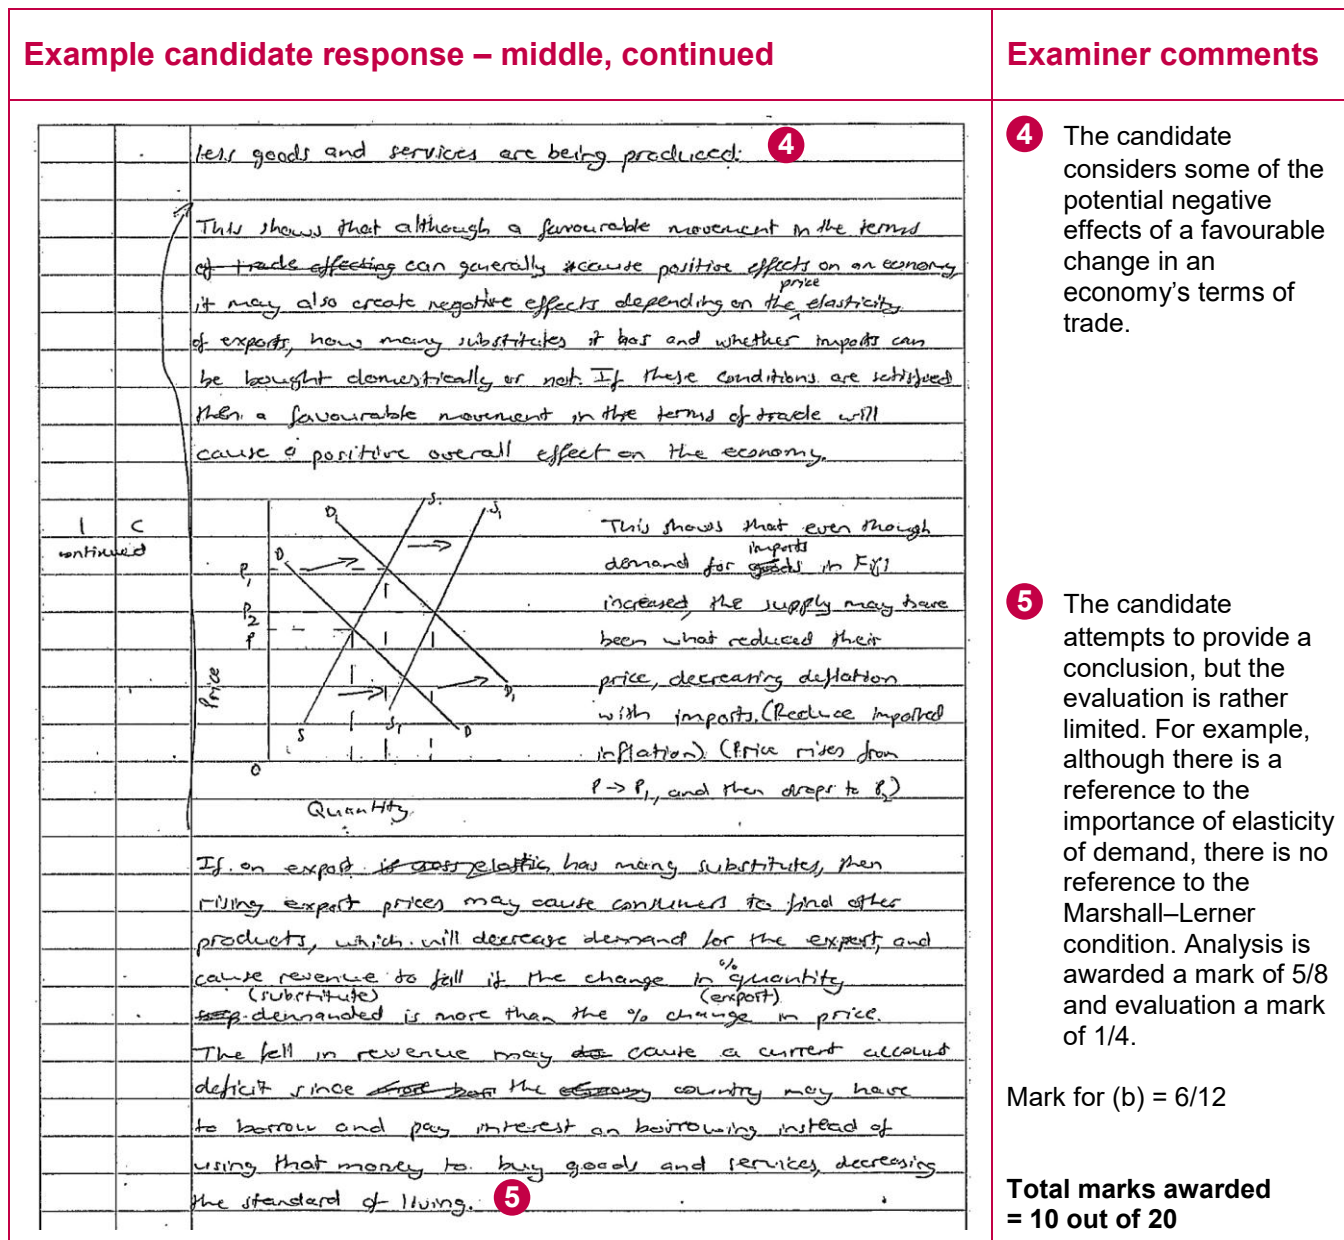 Example candidate response – middle, continued
Examiner comments
less goods and services are being produced. 4
This shows that although a favourable movement in the terms
of trade affecting can generally cause positive effects on an economy
price
it may also create negative effects depending on the elasticity
of exports, how many substitutes it has and whether imports can
be bought domestically or not. If these conditions are satisfied
then a favourable movement in the terms of trade will
cause a positive overall effect on the economy.
1 C
continued
D1
S.
S1
D
P1
P2
P
Price
S
S1
D
D1
0
Quantity
This shows that even though
imports
demand for goods in Fig1
increased, the supply may have
been what reduced their
price, decreasing deflation
with imports. (Reduce imported
inflation) (Price rises from
P -> P1, and then drops to P2)
If an export is cross elastic has many substitutes, then
rising export prices may cause consumers to find other
products, which will decrease demand for the export, and
%
cause revenue to fall if the change in quantity
(substitute) (export)
demanded is more than the % change in price.
The fall in revenue may cause a current account
deficit since the country may have
to borrow and pay interest on borrowing instead of
using that money to buy goods and services, decreasing
the standard of living. 5
4 The candidate
considers some of the
potential negative
effects of a favourable
change in an
economy’s terms of
trade.
5 The candidate
attempts to provide a
conclusion, but the
evaluation is rather
limited. For example,
although there is a
reference to the
importance of elasticity
of demand, there is no
reference to the
Marshall–Lerner
condition. Analysis is
awarded a mark of 5/8
and evaluation a mark
of 1/4.
Mark for (b) = 6/12
Total marks awarded
= 10 out of 20